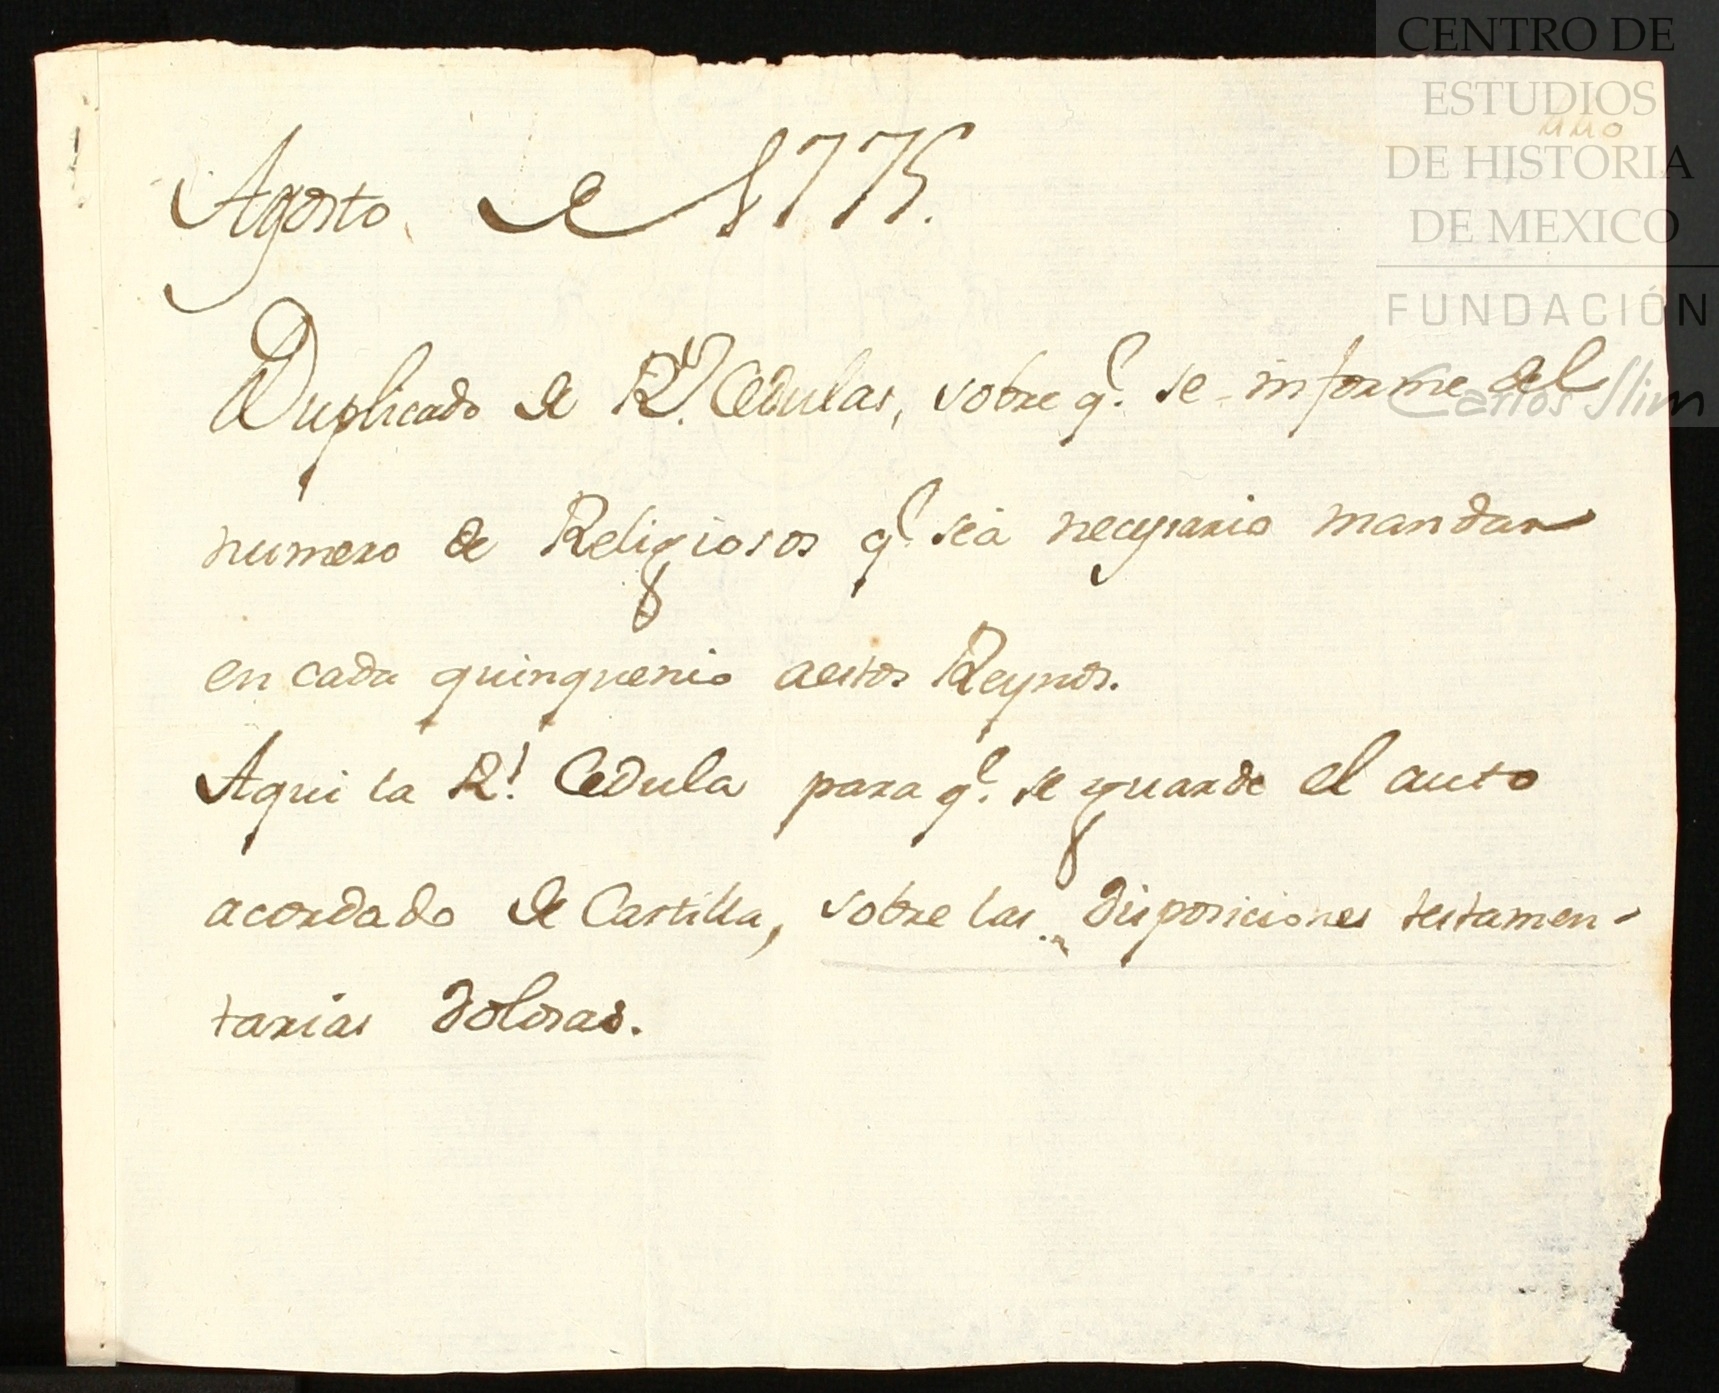 CENTRO DE
ESTUDIOS
DE HISTORIA
DE MEXICO
FUNDACIÓN
Carlos Slim
Agosto de 1775.
Duplicado de Rl. Cedulas, sobre q.e se informe del
numero de Religiosos q.e seà necessario mandar
en cada quinquenio aestos Reynos.
Aqui la Rl. Cedula para q.e se guarde el auto
acordado de Castilla, sobre las disposiciones testamen-
tarias dolosas.